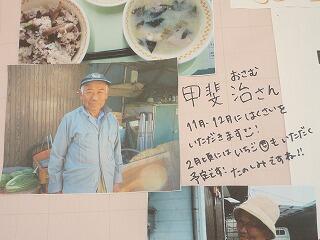 おさむ
甲斐 治さん
11月・12月にはくさいを
いただきます!
2月頃にはいちごもいただく
予定です! たのしみですね!!